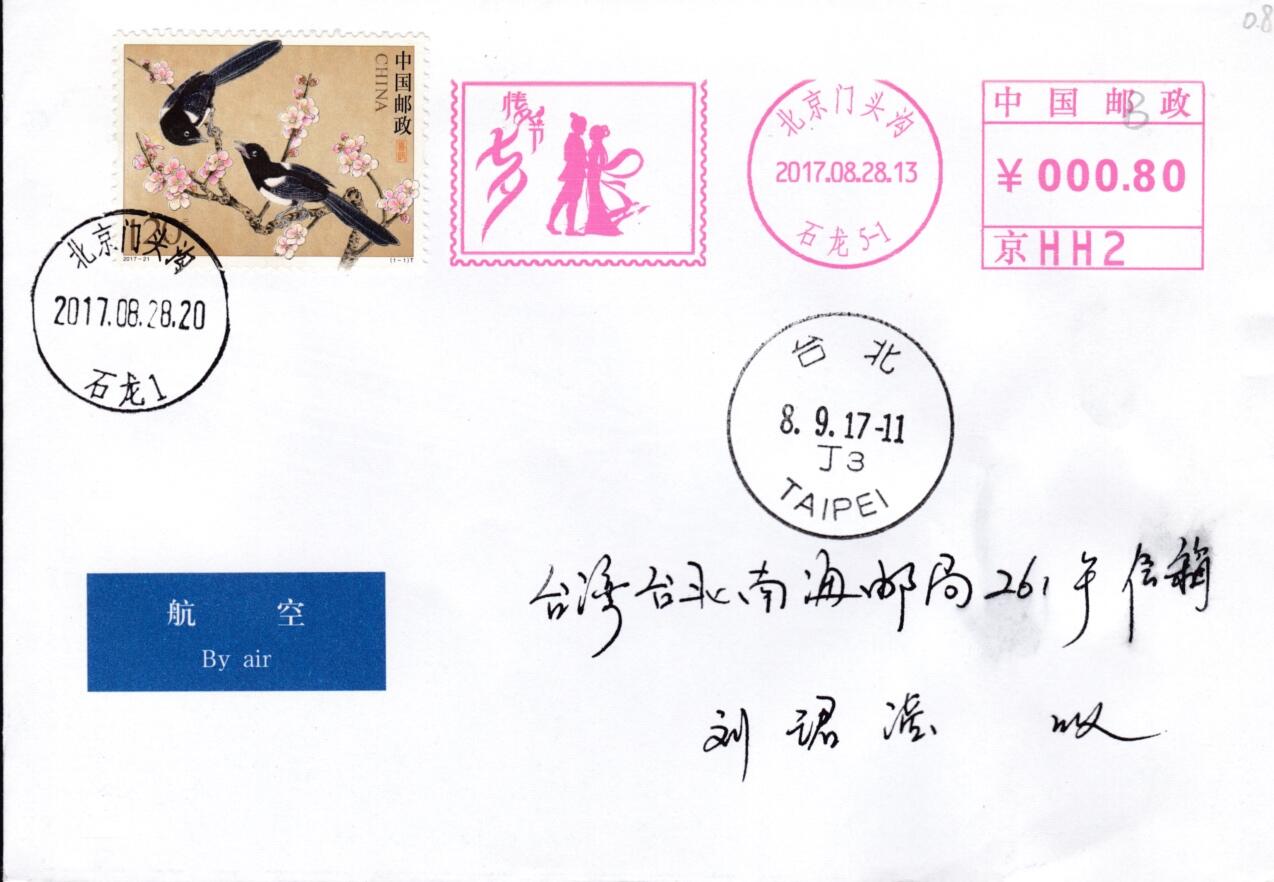 0.8
中国邮政
CHINA
2017-21
(1-1)T
七夕
情人节
北京门头沟
2017.08.28.13
石龙 5-1
中国邮政
¥ 000.80
京HH2
北京门头沟
2017.08.28.20
石龙1
台北
8. 9. 17-11
J3
TAIPEI
航 空
By air
台湾台北南海邮局 261号信箱
刘珺 收